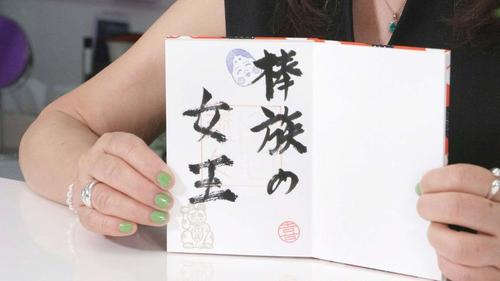 棒族の
女王